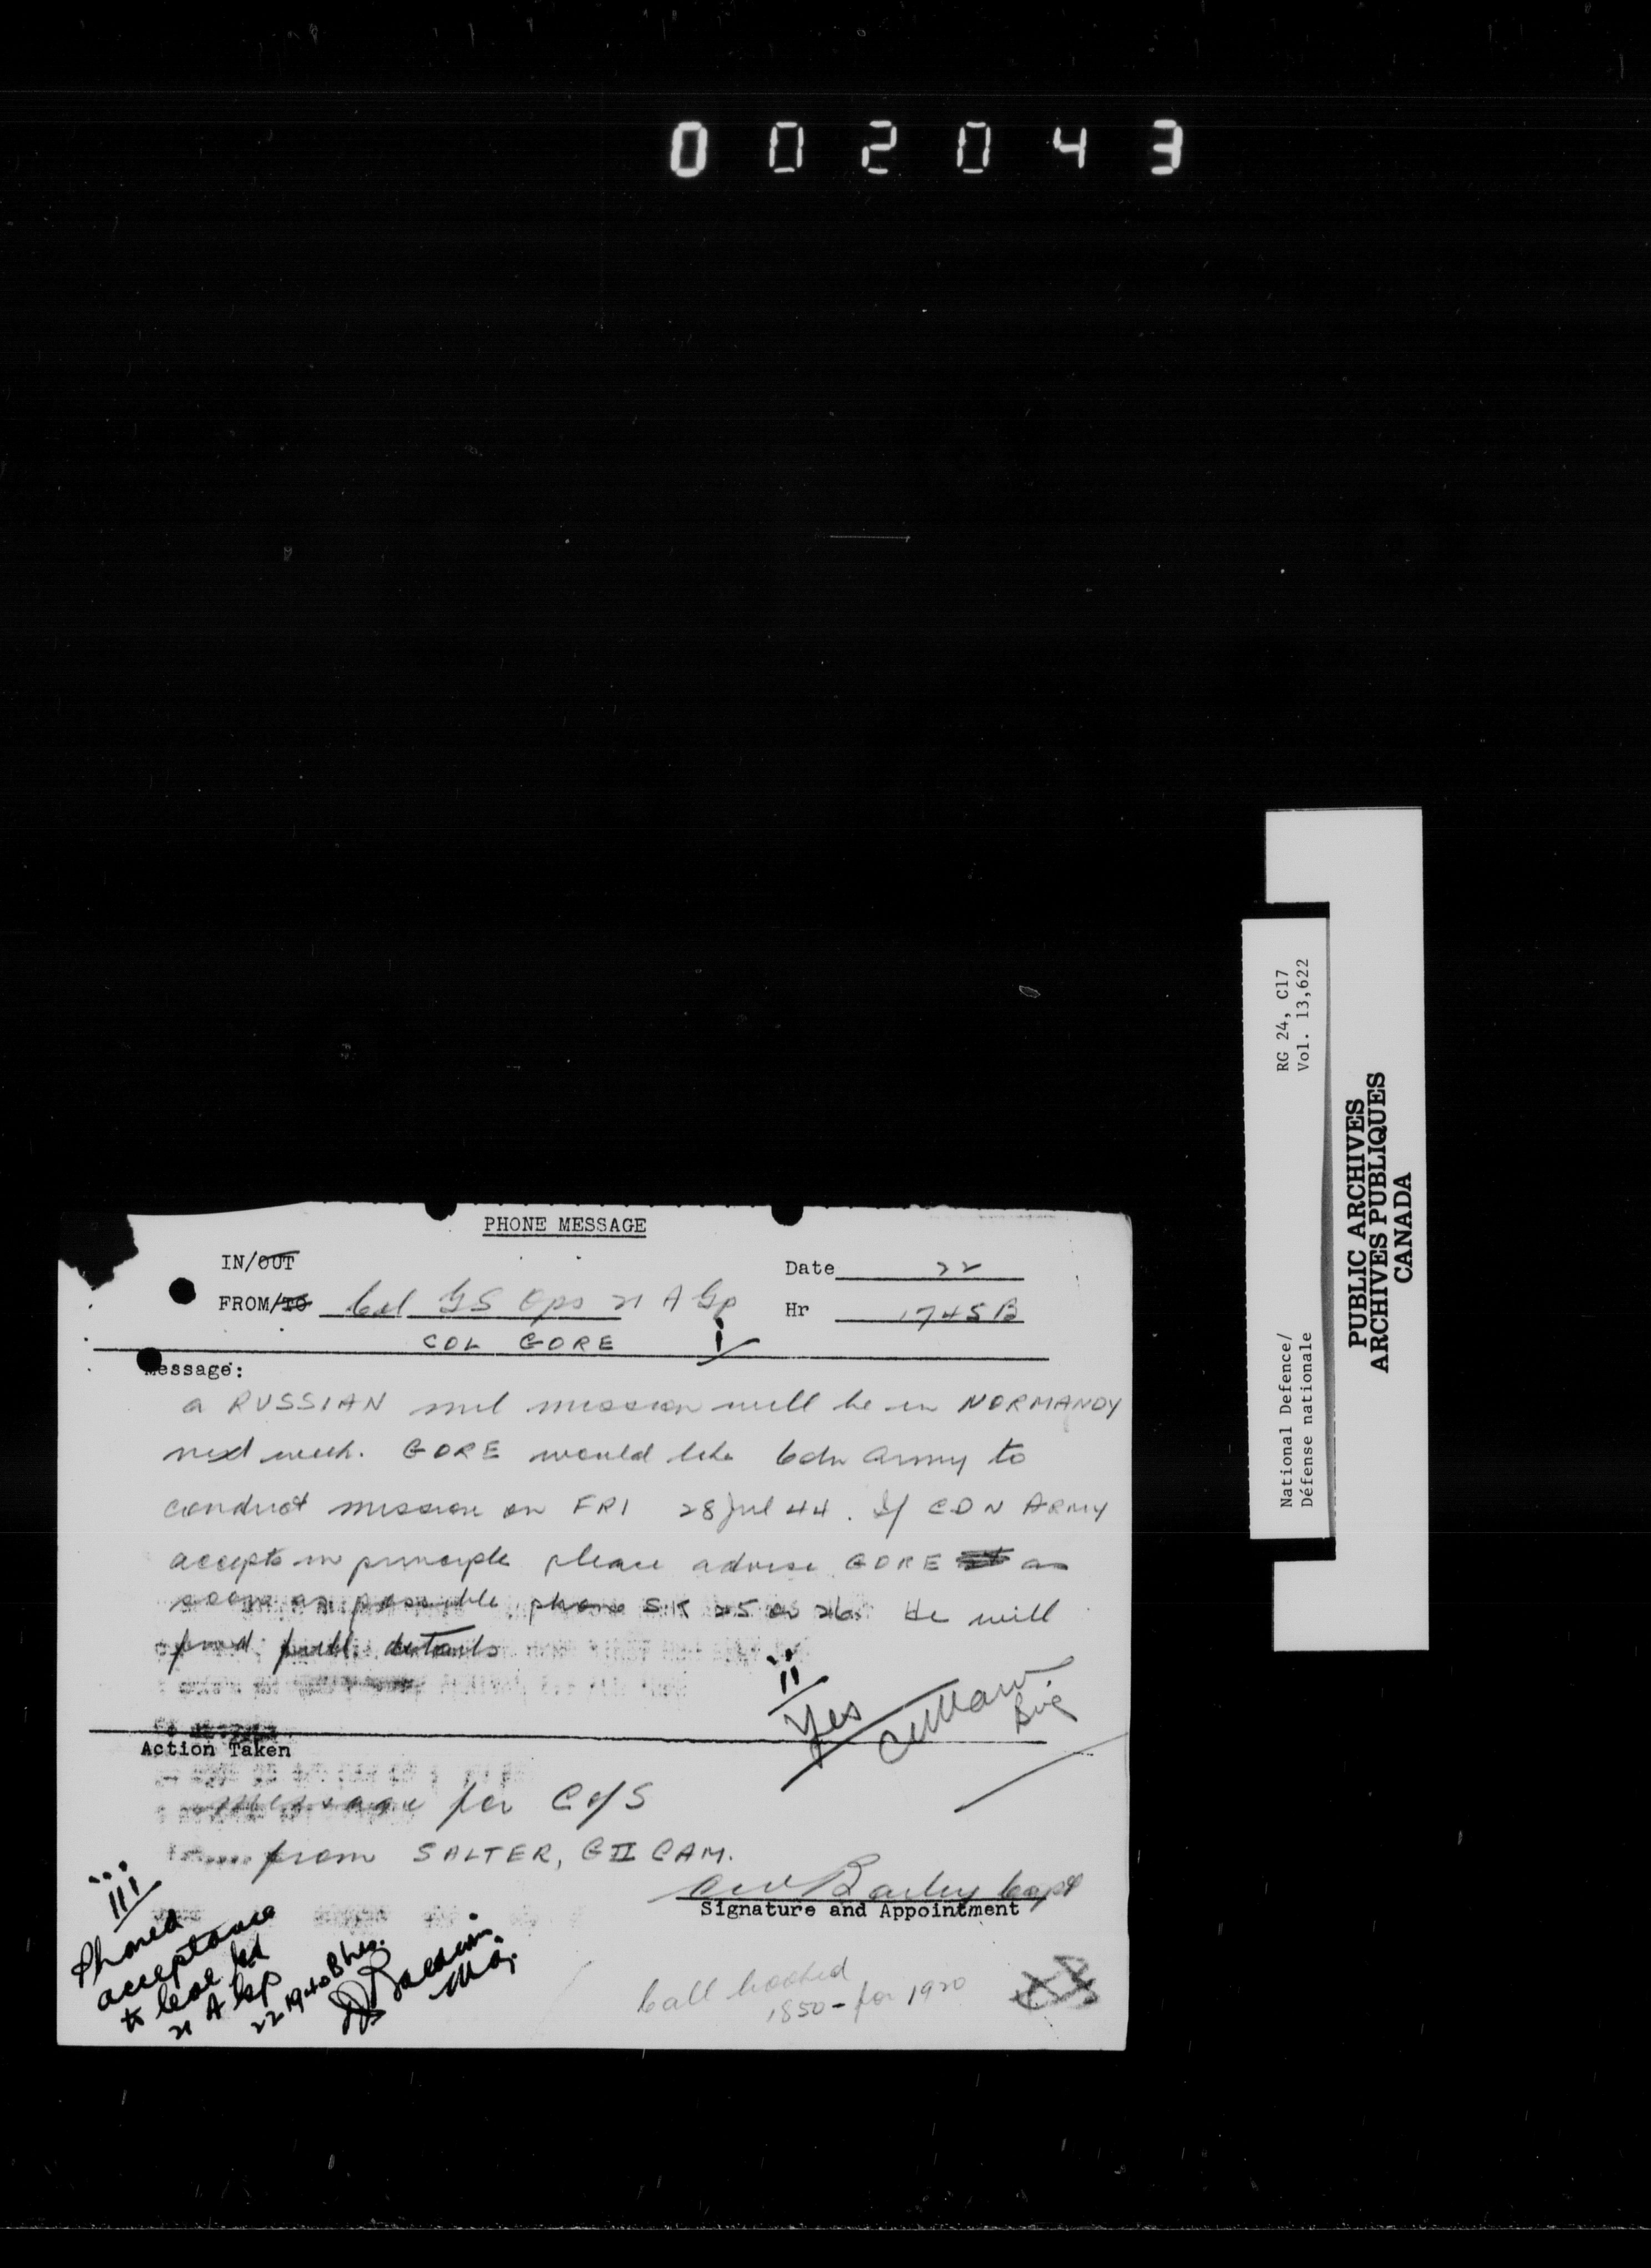 0 0 2 0 4 3
PHONE MESSAGE
IN/OUT
Date 22
FROM/TO Col GS Ops 21 A Gp
Hr 1745B
COL GORE
i
Message:
a RUSSIAN mil mission will be in NORMANDY
next week. GORE would like Cdn Army to
conduct mission on FRI 28 Jul 44. If CDN ARMY
accepts in principle please advise GORE as
soon as possible phone SK 25 or 26. He will
prod full details
ii
Yes
Brig
Action Taken
message for C of S
from SALTER, GII CAM.
Barley Capt
Signature and Appointment
iii
Phoned
acceptance
to
21 A Gp
22 1940 B hrs.
Maj.
Call booked
1850 - for 1920
RG 24, C17
Vol. 13,622
National Defence/
Défense nationale
PUBLIC ARCHIVES
ARCHIVES PUBLIQUES
CANADA